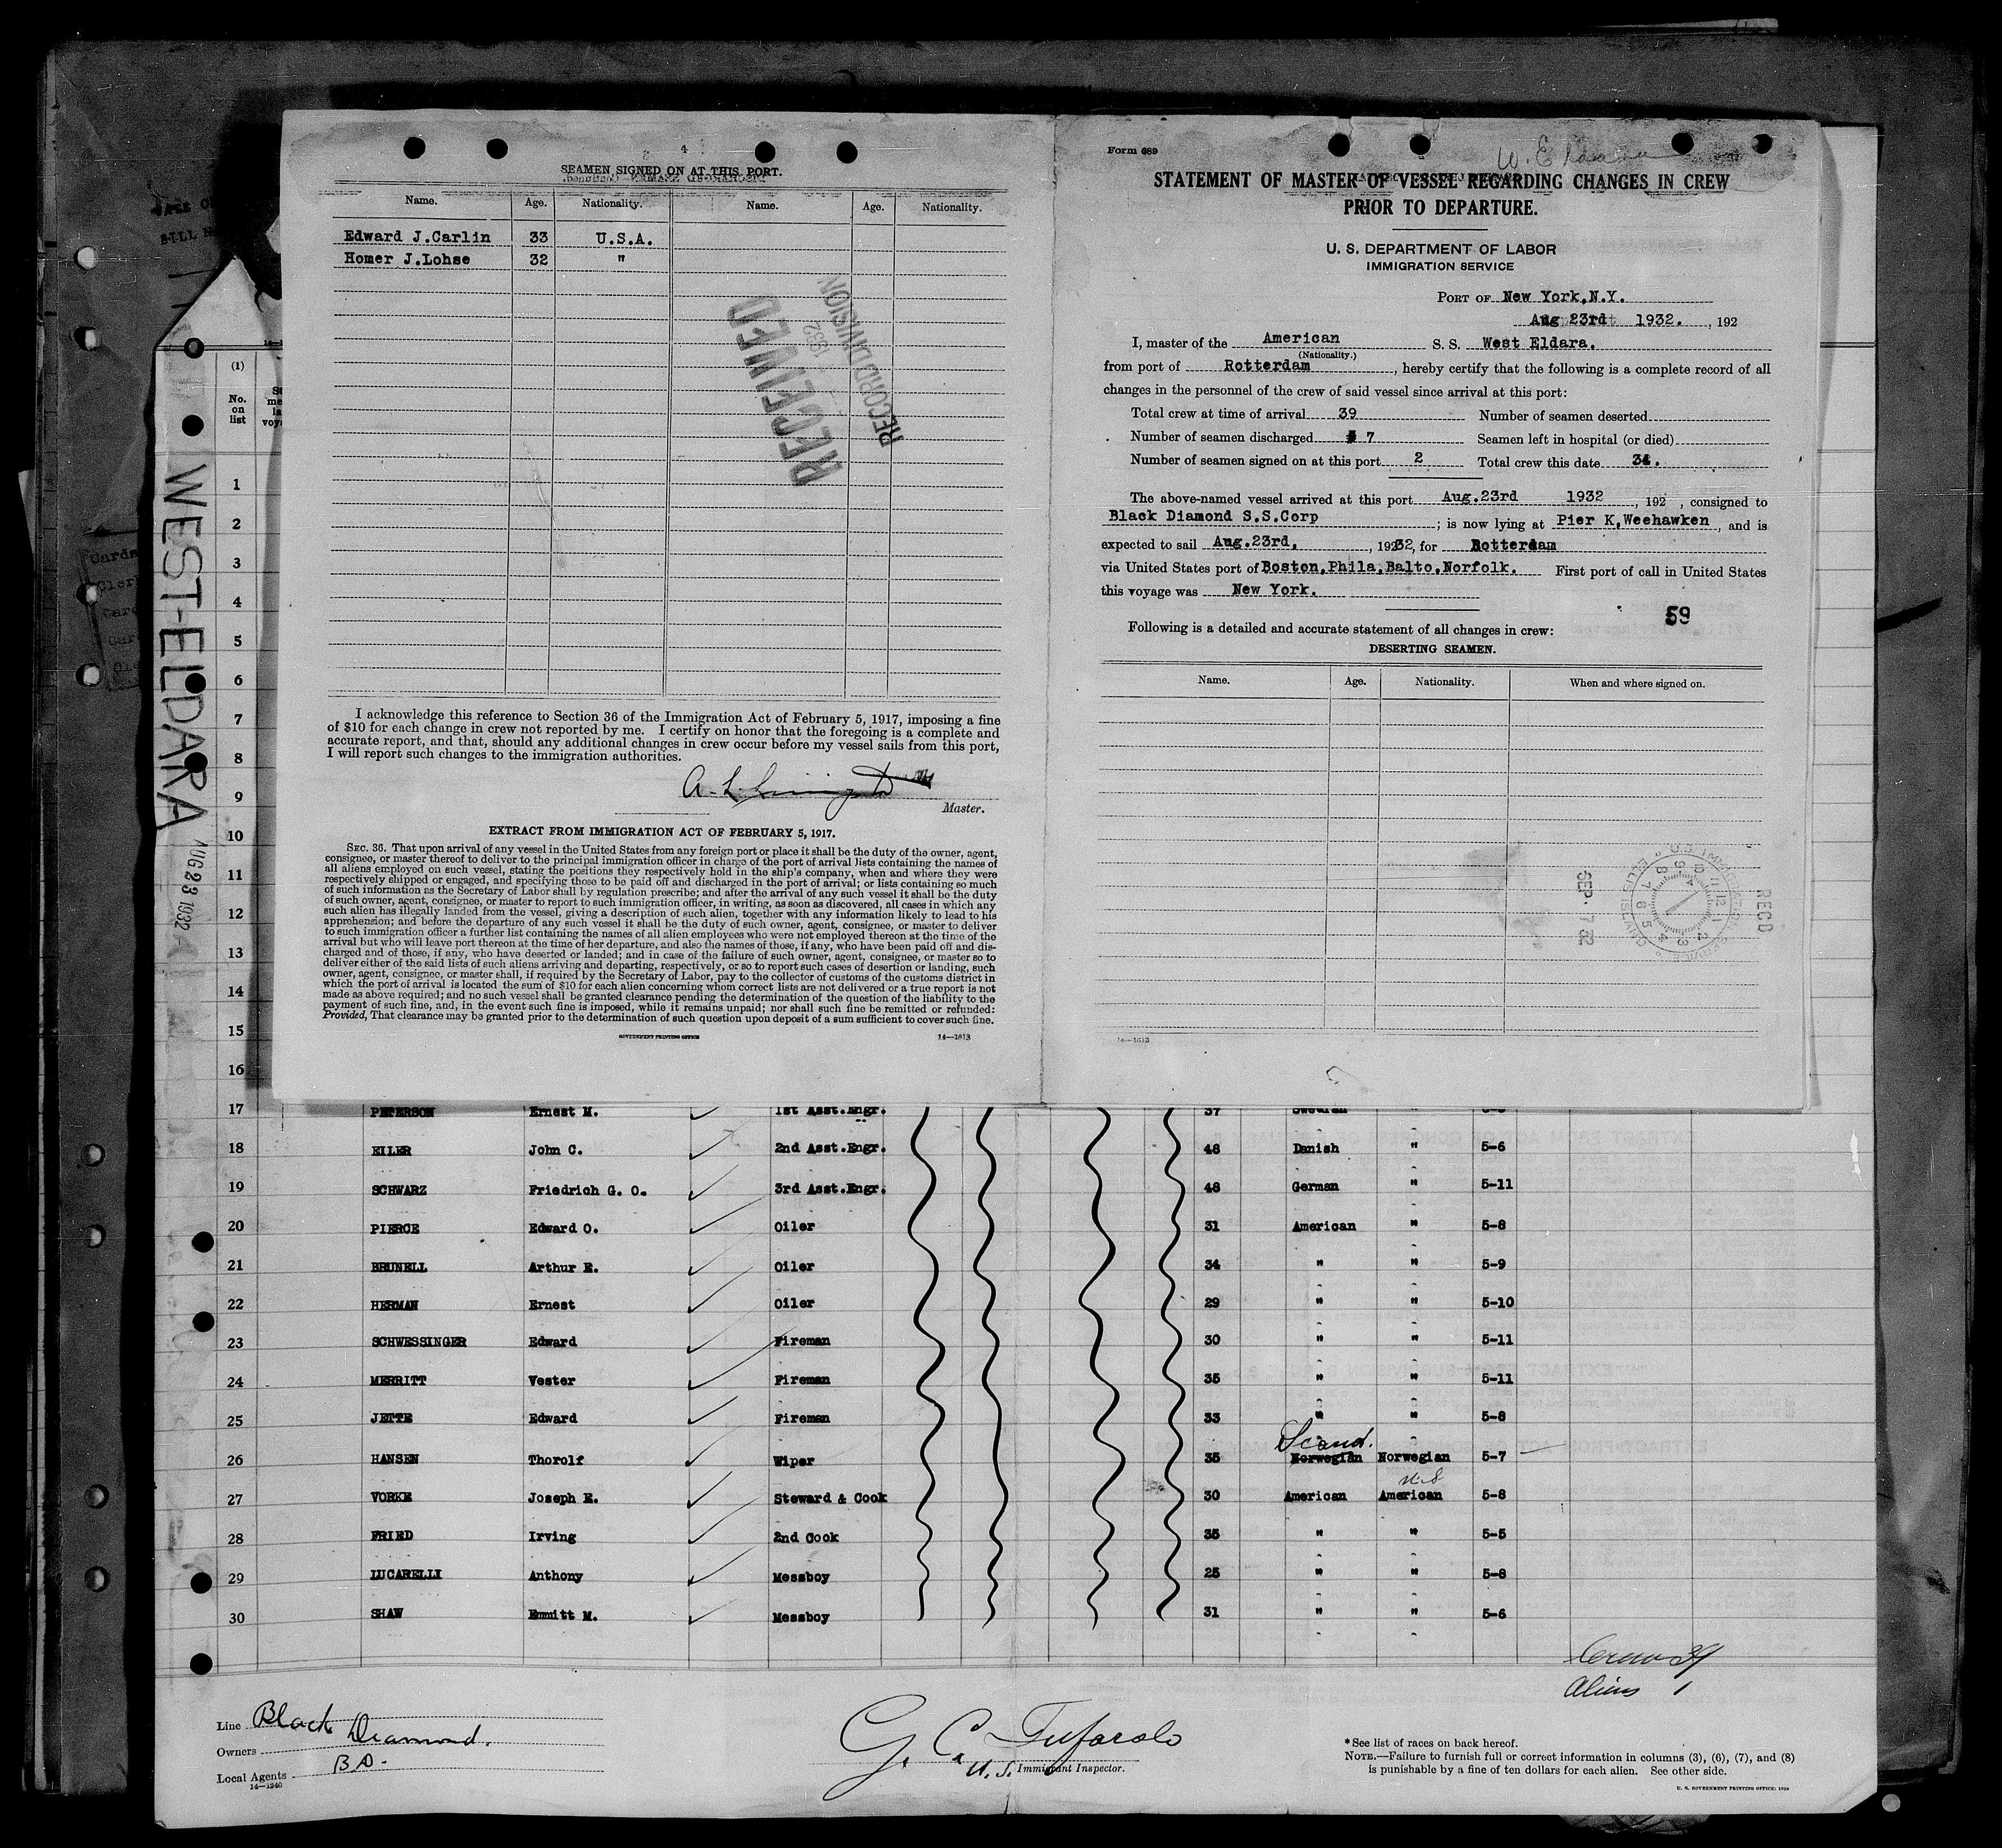 4
SEAMEN SIGNED ON AT THIS PORT.
Name. Age. Nationality. Name. Age. Nationality.
Edward J.Carlin 33 U.S.A.
Homer J.Lohse 32 "
RECEIVED
1932
RECORD DIVISION
I acknowledge this reference to Section 36 of the Immigration Act of February 5, 1917, imposing a fine
of $10 for each change in crew not reported by me. I certify on honor that the foregoing is a complete and
accurate report, and that, should any additional changes in crew occur before my vessel sails from this port,
I will report such changes to the immigration authorities.
Master.
EXTRACT FROM IMMIGRATION ACT OF FEBRUARY 5, 1917.
SEC. 36. That upon arrival of any vessel in the United States from any foreign port or place it shall be the duty of the owner, agent,
consignee, or master thereof to deliver to the principal immigration officer in charge of the port of arrival lists containing the names of
all aliens employed on such vessel, stating the positions they respectively hold in the ship's company, when and where they were
respectively shipped or engaged, and specifying those to be paid off and discharged in the port of arrival; or lists containing so much
of such information as the Secretary of Labor shall by regulation prescribe; and after the arrival of any such vessel it shall be the duty
of such owner, agent, consignee, or master to report to such immigration officer, in writing, as soon as discovered, all cases in which any
such alien has illegally landed from the vessel, giving a description of such alien, together with any information likely to lead to his
apprehension; and before the departure of any such vessel it shall be the duty of such owner, agent, consignee, or master to deliver
to such immigration officer a further list containing the names of all alien employees who were not employed thereon at the time of the
arrival but who will leave port thereon at the time of her departure, and also the names of those, if any, who have been paid off and dis-
charged and of those, if any, who have deserted or landed; and in case of the failure of such owner, agent, consignee, or master so to
deliver either of the said lists of such aliens arriving and departing, respectively, or so to report such cases of desertion or landing, such
owner, agent, consignee, or master shall, if required by the Secretary of Labor, pay to the collector of customs of the customs district in
which the port of arrival is located the sum of $10 for each alien concerning whom correct lists are not delivered or a true report is not
made as above required; and no such vessel shall be granted clearance pending the determination of the question of the liability to the
payment of such fine, and, in the event such fine is imposed, while it remains unpaid; nor shall such fine be remitted or refunded:
Provided, That clearance may be granted prior to the determination of such question upon deposit of a sum sufficient to cover such fine.
GOVERNMENT PRINTING OFFICE 14—1613
Form 689
W. Eldara
STATEMENT OF MASTER OF VESSEL REGARDING CHANGES IN CREW
PRIOR TO DEPARTURE.
U. S. DEPARTMENT OF LABOR
IMMIGRATION SERVICE
PORT OF New York,N.Y.
Aug 23rd 1932. , 192
I, master of the American S. S. West Eldara.
(Nationality.)
from port of Rotterdam , hereby certify that the following is a complete record of all
changes in the personnel of the crew of said vessel since arrival at this port:
Total crew at time of arrival 39 Number of seamen deserted
Number of seamen discharged 7 Seamen left in hospital (or died)
Number of seamen signed on at this port 2 Total crew this date 34.
The above-named vessel arrived at this port Aug.23rd 1932 , 192 , consigned to
Black Diamond S.S.Corp ; is now lying at Pier K,Weehawken , and is
expected to sail Aug.23rd, , 1932, for Rotterdam
via United States port of Boston,Phila,Balto,Norfolk. First port of call in United States
this voyage was New York.
59
Following is a detailed and accurate statement of all changes in crew:
DESERTING SEAMEN.
Name. Age. Nationality. When and where signed on.
REC'D
U.S. IMMIGRATION SERVICE
ELLIS ISLAND
SEP. 7 32
14—1613
WEST-ELDARA
AUG 23 1932
(1)
No.
on
list
1
2
3
4
5
6
7
8
9
10
11
12
13
14
15
16
17 PETERSON Ernest M. 1st Asst.Engr. 37 Swedish "
18 EILER John C. 2nd Asst.Engr. 48 Danish " 5-6
19 SCHWARZ Friedrich G. O. 3rd Asst.Engr. 48 German " 5-11
20 PIERCE Edward O. Oiler 31 American " 5-8
21 BRUNELL Arthur E. Oiler 34 " " 5-9
22 HERMAN Ernest Oiler 29 " " 5-10
23 SCHWESSINGER Edward Fireman 30 " " 5-11
24 MERRITT Vester Fireman 35 " " 5-11
25 JETTE Edward Fireman 33 " " 5-8
Scand.
26 HANSEN Thorolf Wiper 35 Norwegian Norwegian 5-7
U.S
27 VORKE Joseph E. Steward & Cook 30 American American 5-8
28 FRIED Irving 2nd Cook 35 " " 5-5
29 LUCARELLI Anthony Messboy 25 " " 5-8
30 SHAW Emmitt M. Messboy 31 " " 5-6
Crew 39
Aliens 1
Line Black Diamond.
Owners
Local Agents B D.
14—1240
G. C. Tufarolo
U.S. Immigrant Inspector.
*See list of races on back hereof.
NOTE.—Failure to furnish full or correct information in columns (3), (6), (7), and (8)
is punishable by a fine of ten dollars for each alien. See other side.
U. S. GOVERNMENT PRINTING OFFICE: 1928